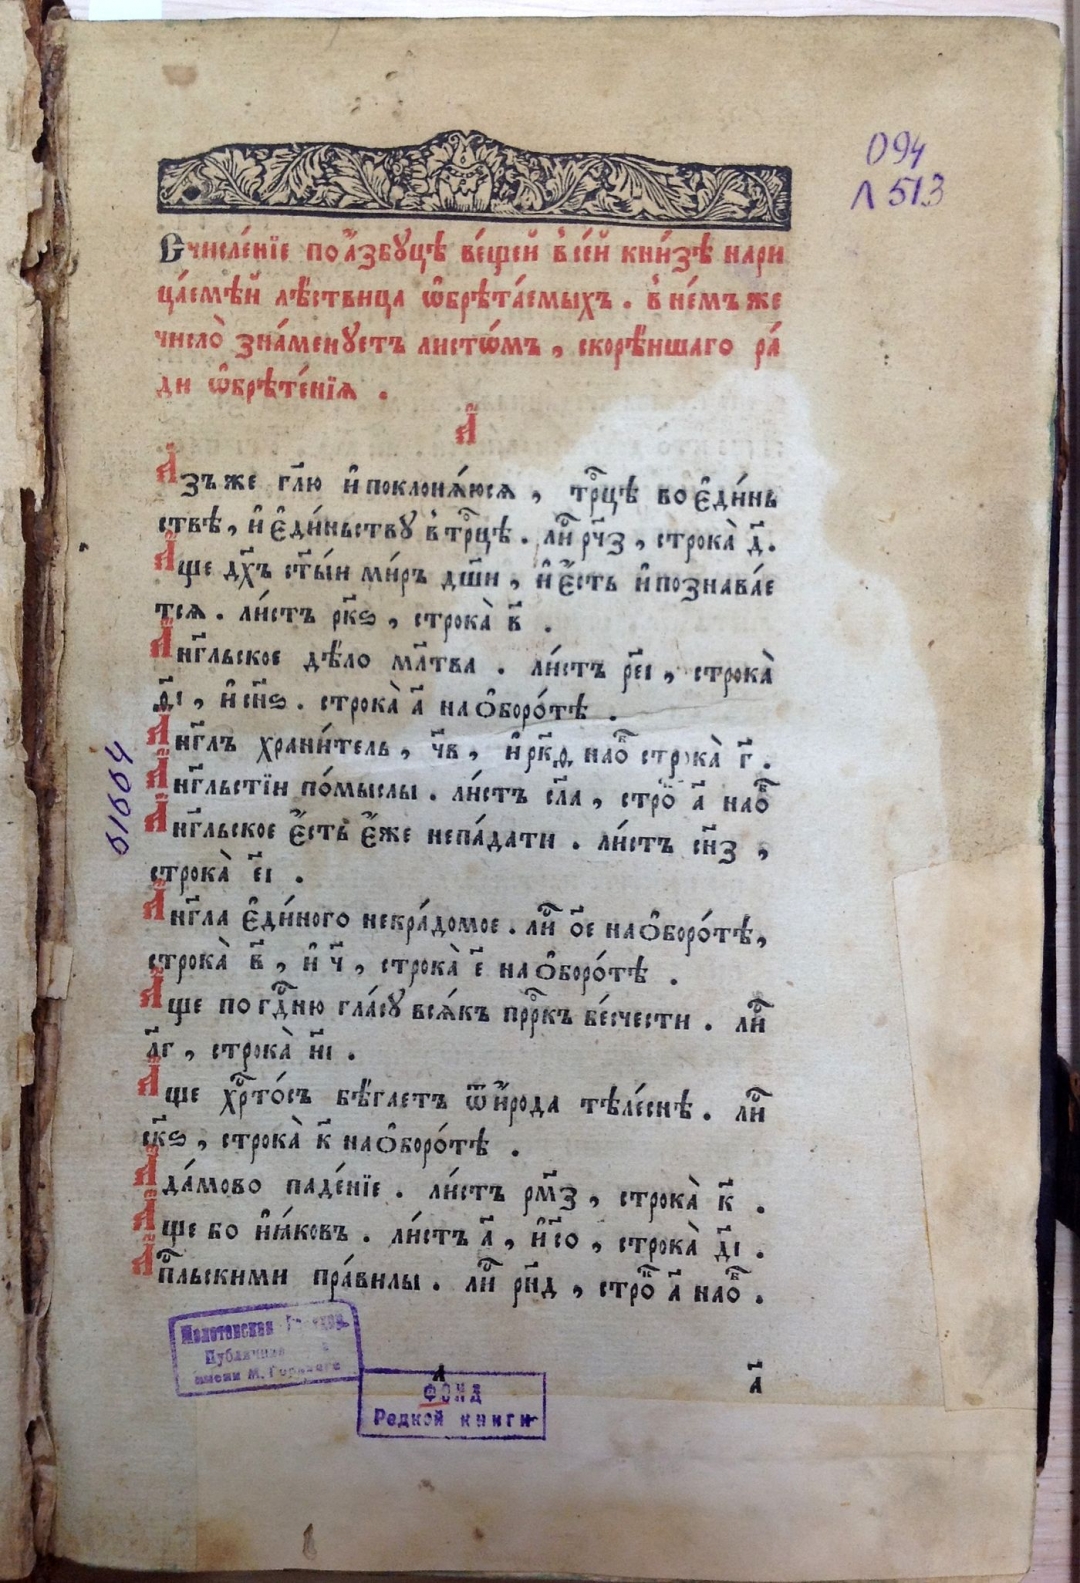 094
Л 513
Счисле́нїе по а҆́збꙋцѣ ве́щей в̾ се́й кни́зѣ нари
ца́емѣй лѣ́ствица ѡ҆брѣта́емыхъ . в̾ не́мъ же
число̀ зна́менꙋетъ листѡ́мъ , скорѣ́ншаго ра́
ди ѡ҆брѣте́нїѧ .
А҃
А҆зъ же гл҃ю и҆ поклонѧ́юсѧ , трⷪ҇цѣ во є҆ди́нь
ствѣ , и҆ є҆ди́ньствꙋ в̾ трⷪ҇цѣ . лиⷭ҇ рч҃з , строка̀ д҃ .
А҆ще дх҃ъ ст҃ы́и ми́ръ дш҃и , и҆ є҆́сть и҆ познава́е
тсѧ . ли́стъ рк҃ѕ , строка̀ в҃ .
А҆нг҃льское дѣ́ло мл҃тва . ли́стъ ре҃і , строка̀
д҃і , и҆ сн҃ѕ . строка̀ а҃ на ѻ҆боро́тѣ .
А҆нг҃лъ храни́тель , ч҃в , и҆ рк҃д наоⷠ строка̀ г҃ .
А҆нг҃льстїи по́мыслы . ли́стъ сл҃а , строⷦ а҃ наоⷠ
А҆нг҃льское є҆́сть є҆́же непа́дати . ли́стъ сн҃з ,
строка̀ е҃і .
А҆нг҃ла є҆ди́ного некра́домое . лиⷭ҇ о҃е на ѻ҆боро́тѣ ,
строка̀ в҃ , и҆ ч҃ , строка̀ е҃ на ѻ҆боро́тѣ .
А҆ще по гдⷭ҇ню гла́сꙋ всѧ́къ прⷪ҇ркъ бе́счести . лиⷭ҇
л҃г , строка̀ и҃і .
А҆ще хрⷭ҇то́съ бѣ́гаетъ ѿ и҆́рода тѣле́снѣ . лиⷭ҇
ск҃ѕ , строка̀ к҃ на ѻ҆боро́тѣ .
А҆да́мово паде́нїе . ли́стъ рм҃з , строка̀ к҃ .
А҆ще бо и҆ ꙗ҆́ковъ . ли́стъ а҃ , и҆ со҃ , строка̀ д҃і .
А҆пⷭ҇льскими пра́вилы . лиⷭ҇ рн҃д , строⷦ а҃ наоⷠ .
61664
Молотовская
Публичная
имени М. Горького
ФОНД
Редкой книги
а҃